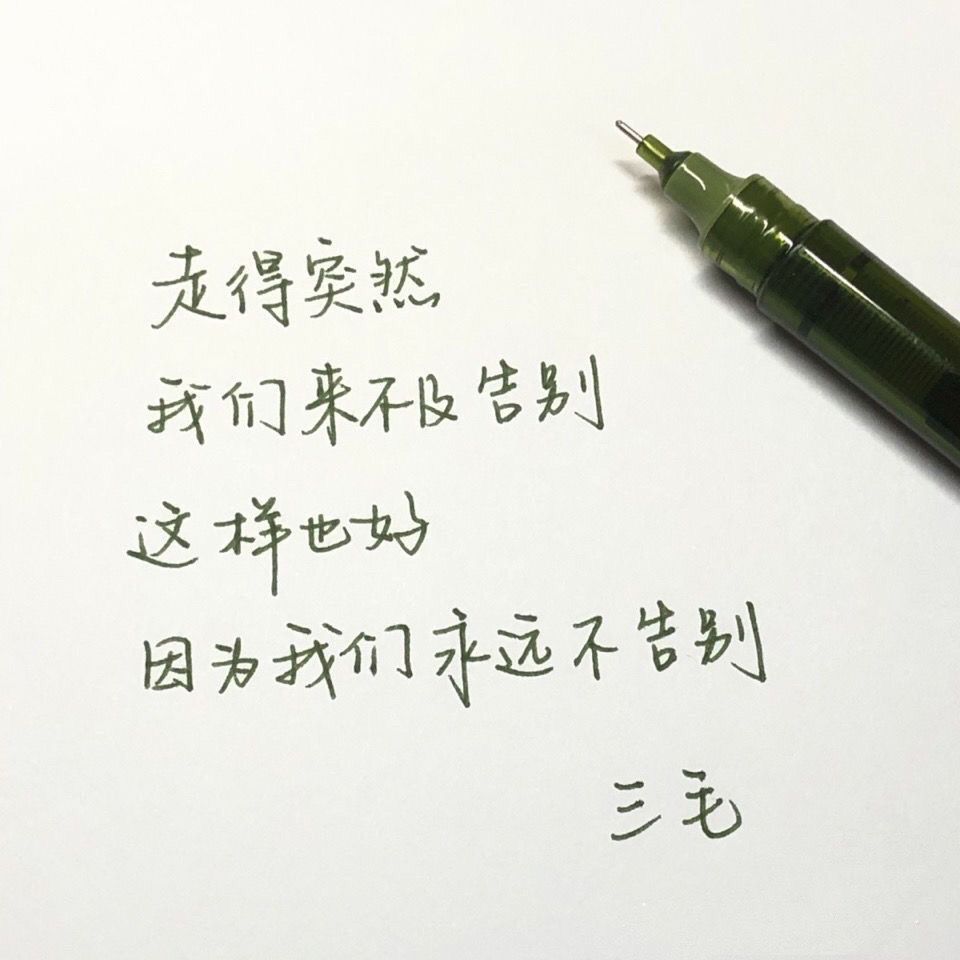 走得突然
我们来不及告别
这样也好
因为我们永远不告别
三毛